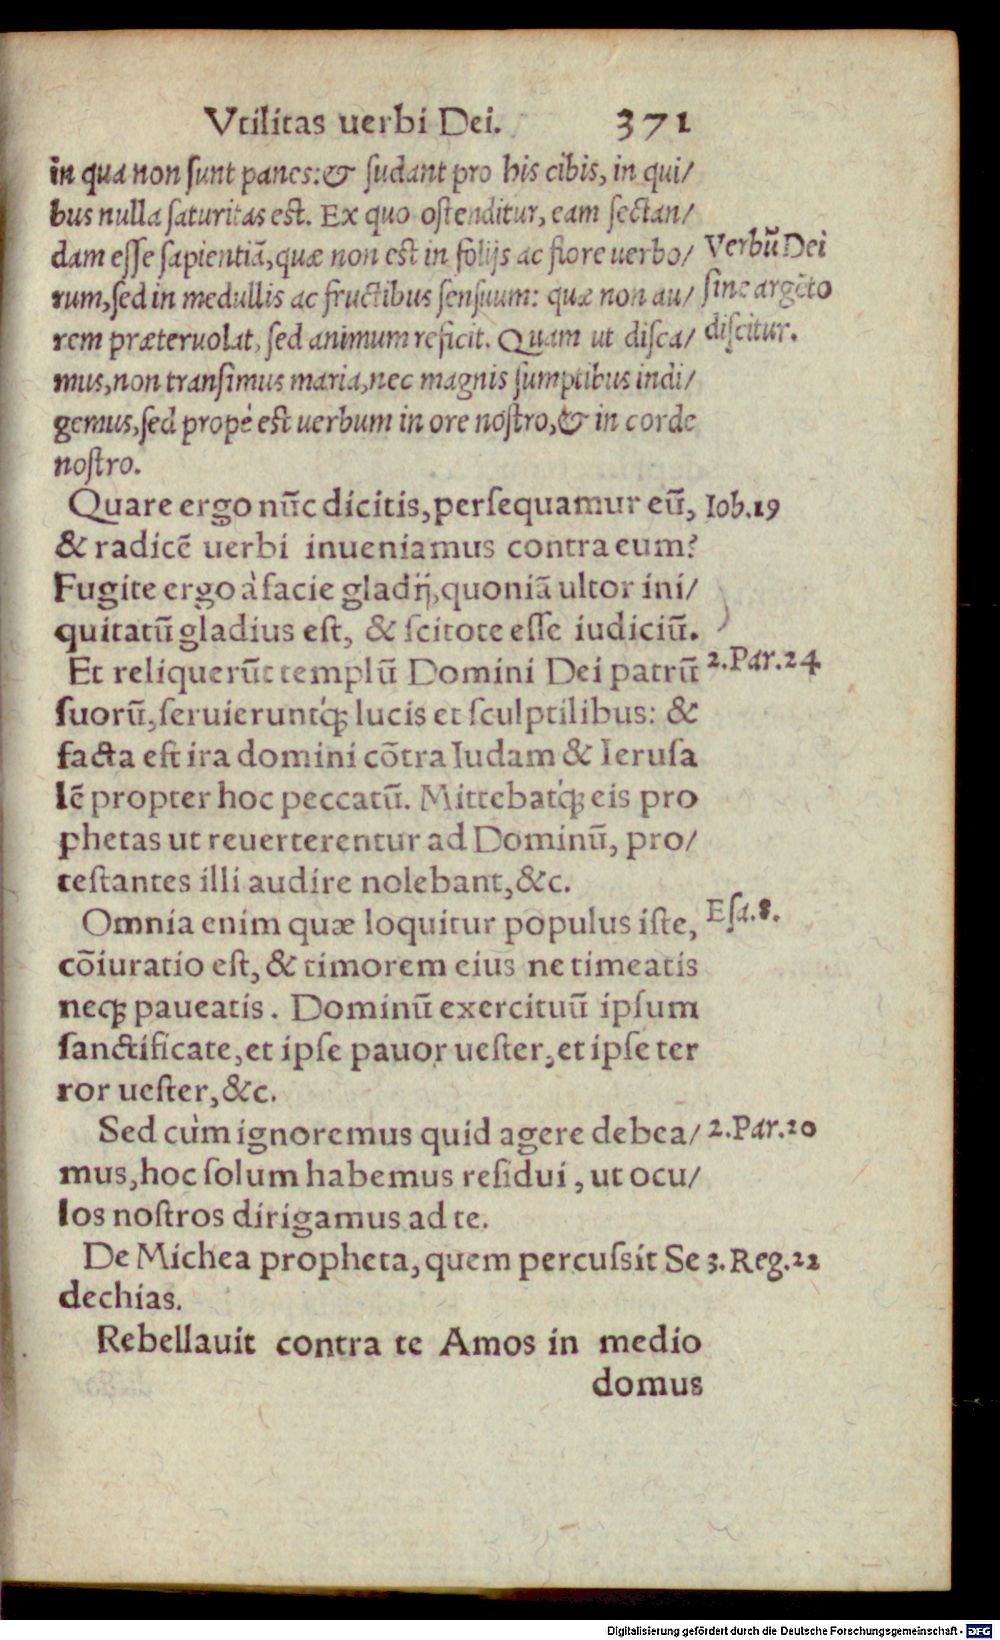 Vtilitas uerbi Dei. 371
in qua non sunt panes: & sudant pro his cibis, in qui/
bus nulla saturitas est. Ex quo ostenditur, eam sectan/
dam esse sapientiā, quæ non est in folijs ac flore uerbo/
rum, sed in medullis ac fructibus sensuum: quæ non au/
rem præteruolat, sed animum reficit. Quam ut disca/
mus, non transimus maria, nec magnis sumptibus indi/
gemus, sed propè est uerbum in ore nostro, & in corde
nostro.
Verbū Dei
sine argēto
discitur.
Quare ergo nūc dicitis, persequamur eū,
& radicē uerbi inueniamus contra eum?
Fugite ergo à facie gladij, quoniā ultor ini/
quitatū gladius est, & scitote esse iudiciū.
Iob.19
Et reliquerūt templū Domini Dei patrū
suorū, seruieruntq́; lucis et sculptilibus: &
facta est ira domini cōtra Iudam & Ierusa
lē propter hoc peccatū. Mittebatq́; eis pro
phetas ut reuerterentur ad Dominū, pro/
testantes illi audire nolebant, &c.
2.Par.24
Omnia enim quæ loquitur populus iste,
cōiuratio est, & timorem eius ne timeatis
neq; paueatis. Dominū exercituū ipsum
sanctificate, et ipse pauor uester, et ipse ter
ror uester, &c.
Esa.8.
Sed cùm ignoremus quid agere debea/
mus, hoc solum habemus residui, ut ocu/
los nostros dirigamus ad te.
2.Par.20
De Michea propheta, quem percussit Se
dechias.
3.Reg.22
Rebellauit contra te Amos in medio
domus
Digitalisierung gefördert durch die Deutsche Forschungsgemeinschaft - DFG